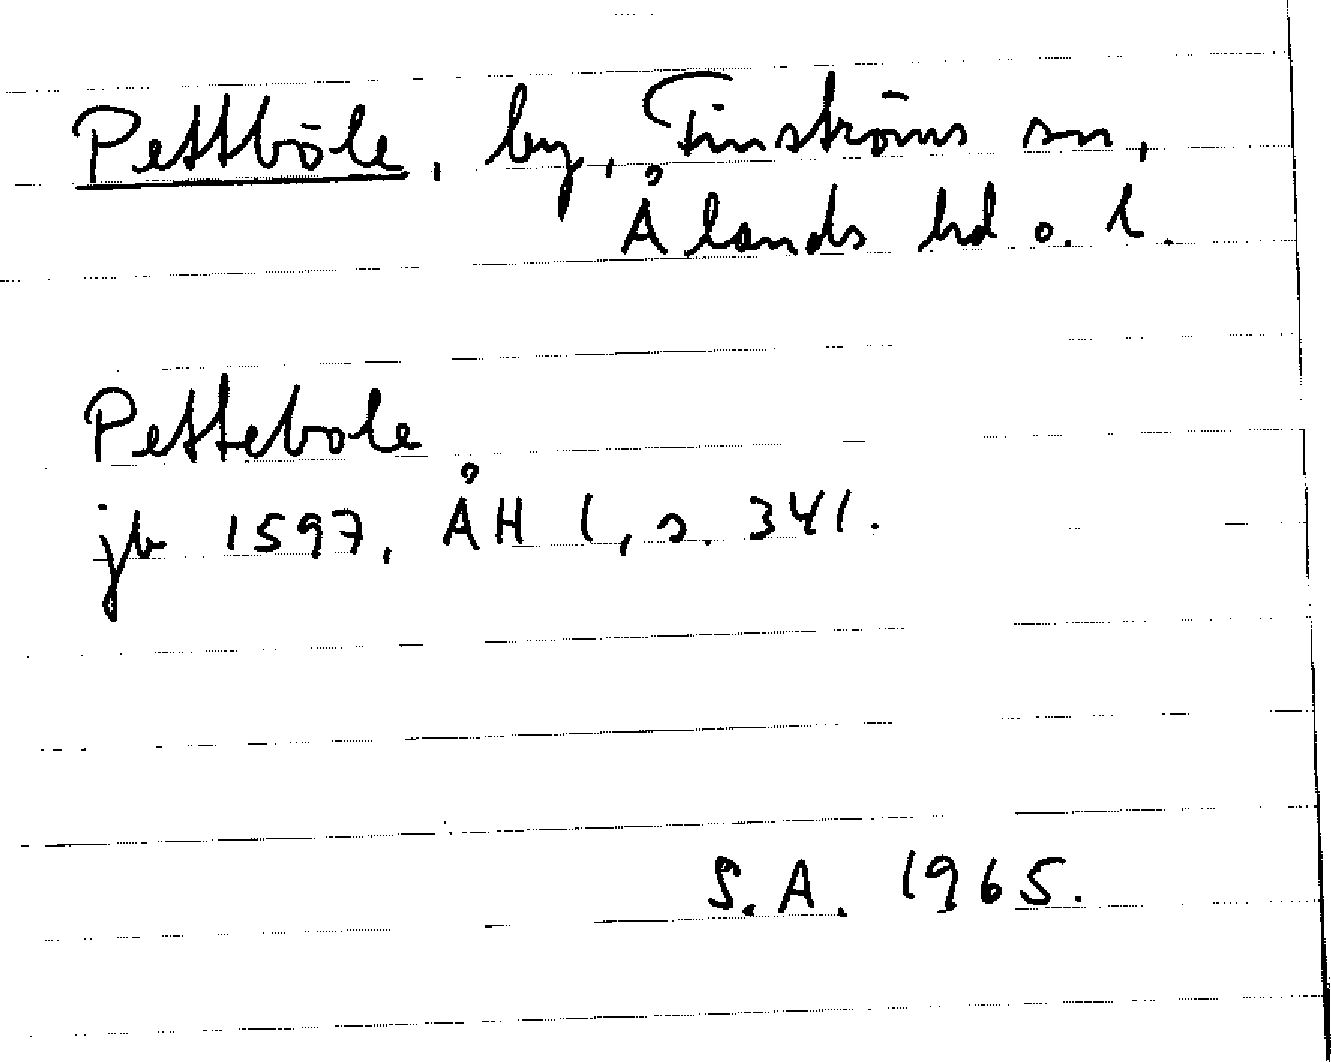 Pettböle, by, Finströms sn,
Ålands hd o. l.
Pettebole
jb 1597, ÅH 1, s. 341.
S.A. 1965.